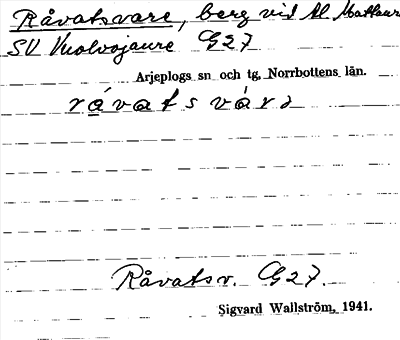 Råvatsvare, berg vid St. Mattaur
SV Vuolvojaure G27
Arjeplogs sn och tg, Norrbottens län.
rávatsvárə
Råvatsv. G27.
Sigvard Wallström, 1941.